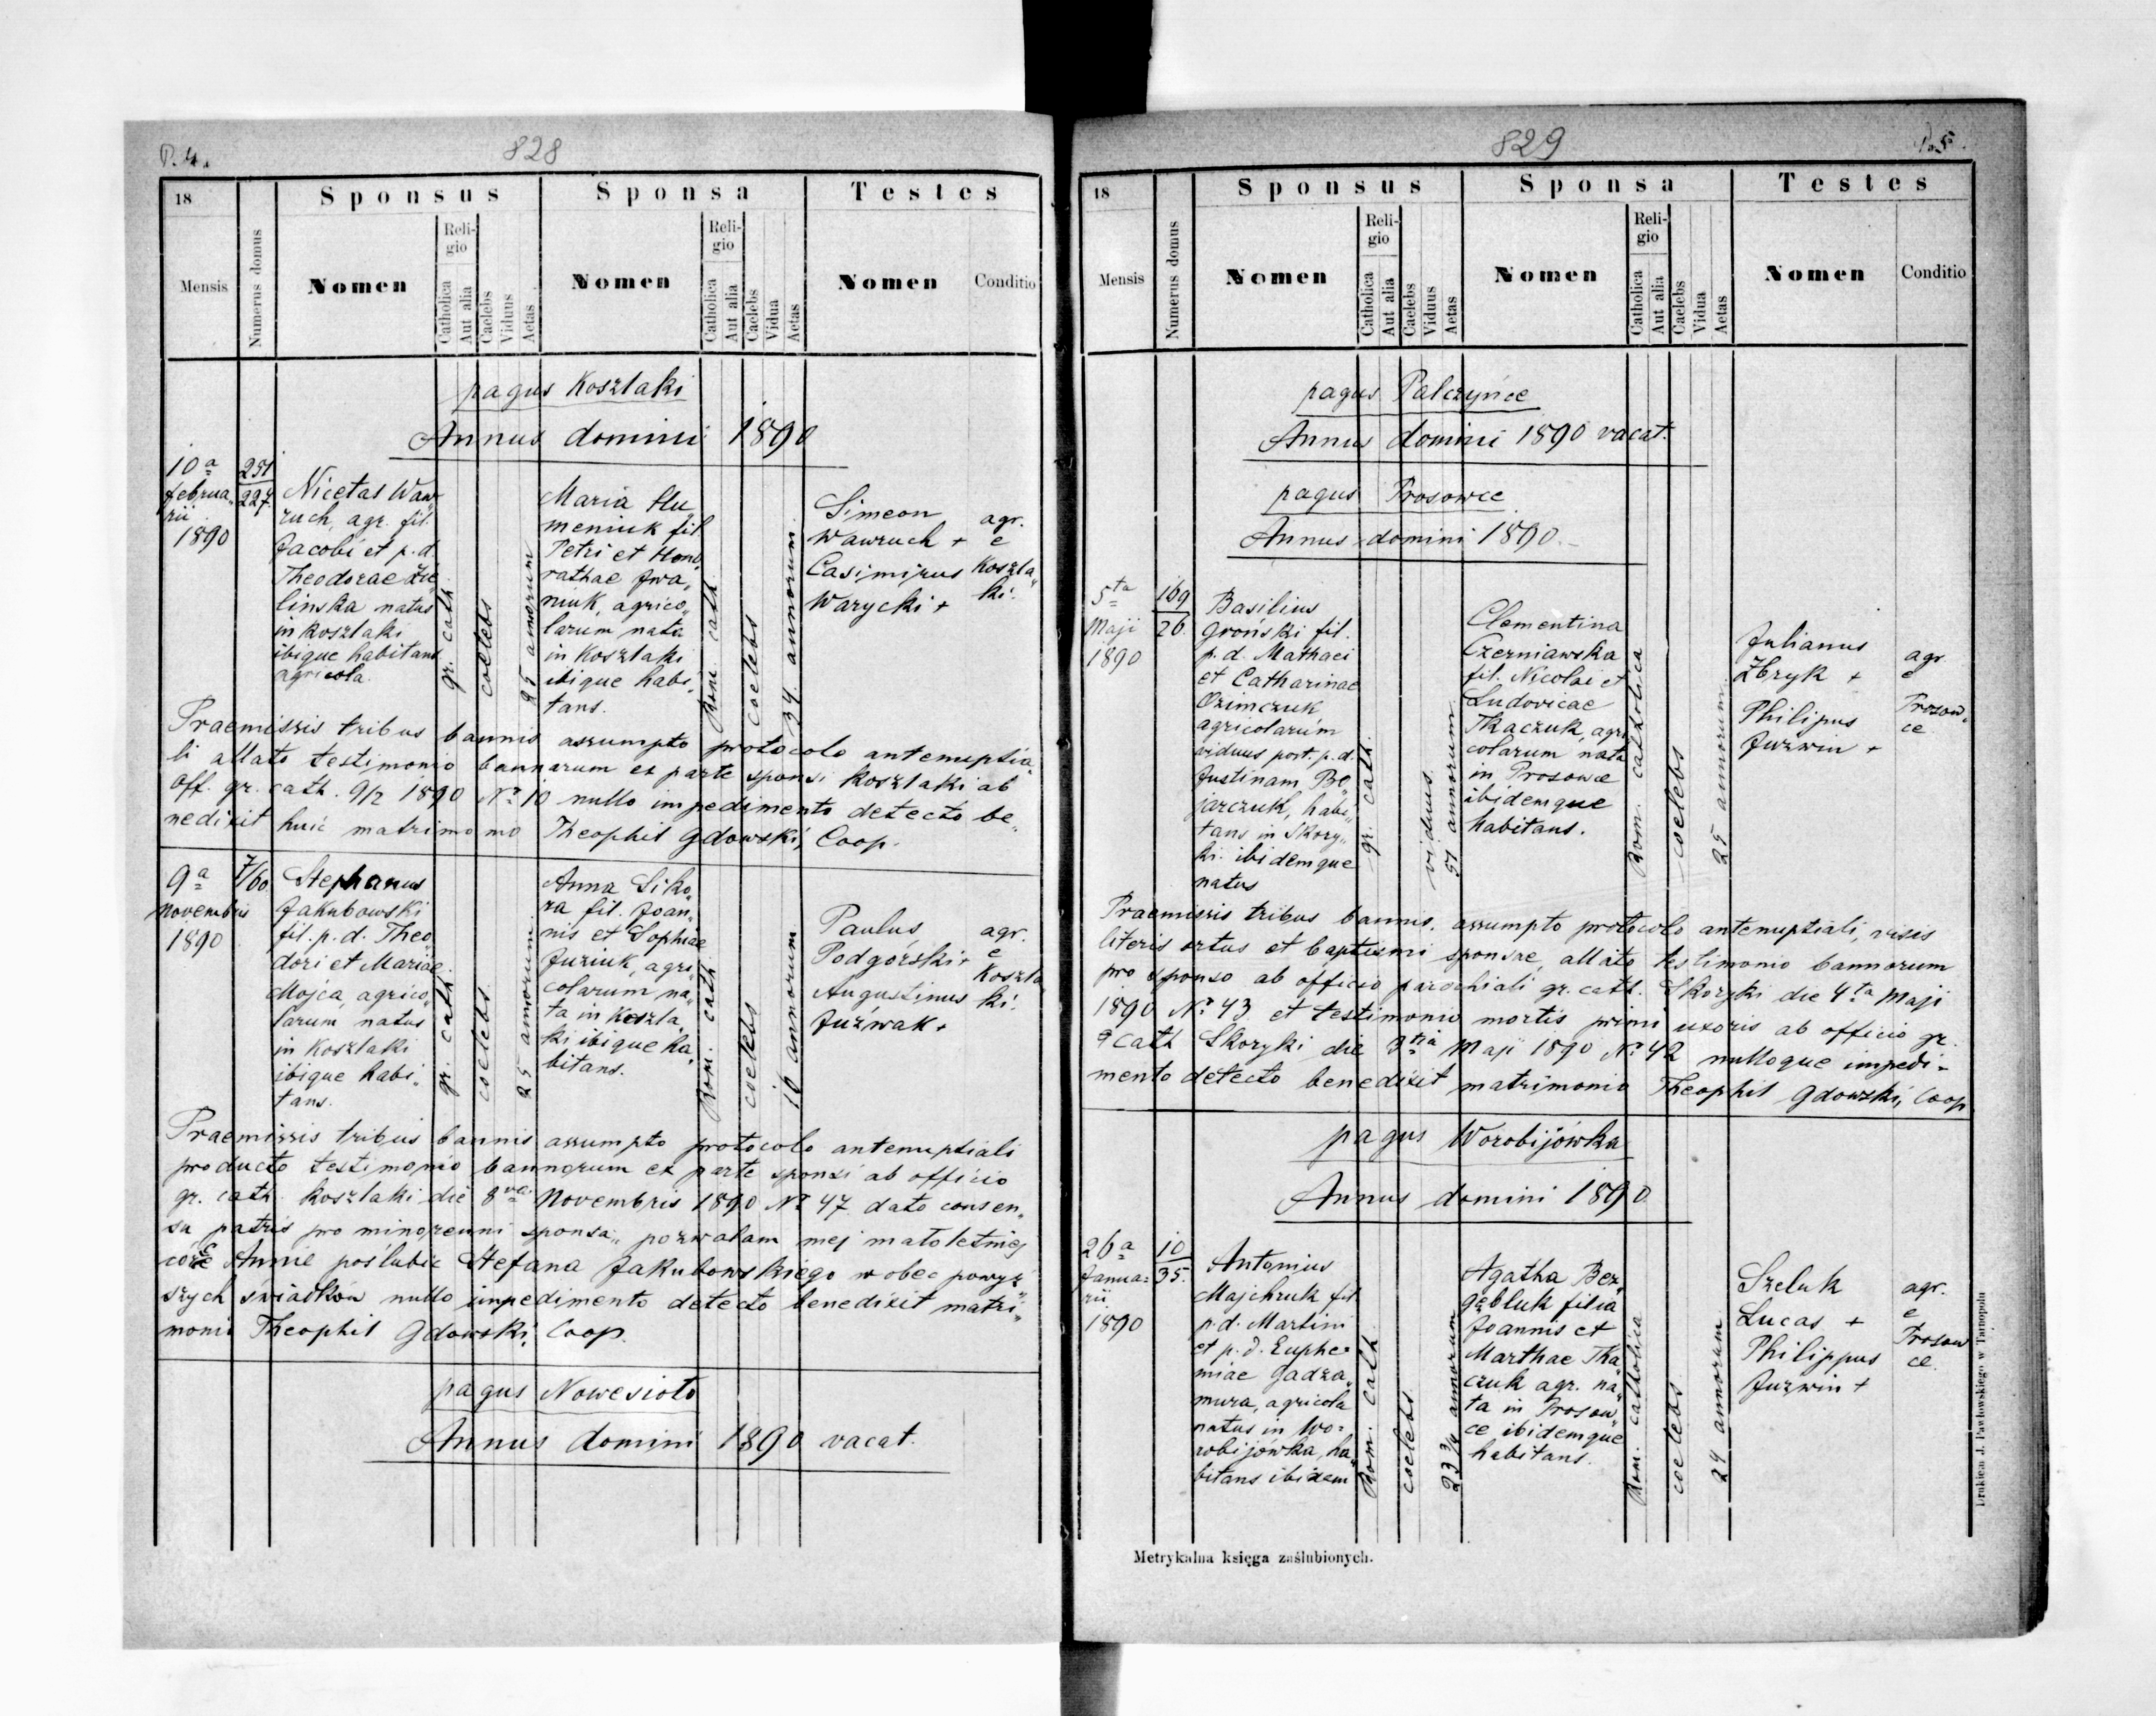 P. 4.
828
18
Sponsus
Sponsa
Testes
Mensis
Numerus domus
Nomen
Religio
Catholica
Aut alia
Caelebs
Viduus
Aetas
Nomen
Religio
Catholica
Aut alia
Caelebs
Vidua
Aetas
Nomen
Conditio
pagus Koszlaki
Annus domini 1890
10a
februa„
rii
1890
251
227
Nicetas Waw„
ruch, agr. fil.
Jacobi et p. d.
Theodorae Zie„
linska natus
in Koszlaki
ibique habitans
agricola.
gr. cath.
coelebs
25 annorum
Maria Hu„
meniuk fil.
Petri et Hono„
rathae Iwa„
niuk, agrico„
larum nata
in Koszlaki
ibique habi„
tans.
Rom. cath.
coelebs
34 annorum
Simeon
Wawruch +
Casimirus
Warycki +
agr.
e
Koszla„
ki.
Praemissis tribus bannis assumpto protocolo antenuptia„
li allato testimonio bannorum ex parte sponsi Koszlaki ab
off. gr. cath. 9/2 1890 No 10 nullo impedimento detecto be„
nedixit huic matrimonio Theophil Gdowski, Coop.
9a
Novembris
1890
7/60
Stephanus
Jakubowski
fil. p. d. Theo„
dori et Mariae
Mojca, agrico„
larum natus
in Koszlaki
ibique habi„
tans.
gr. cath.
coelebs
25 annorum
Anna Siko„
ra fil. Joan„
nis et Sophiae
Juziuk, agri„
colarum na„
ta in Koszla„
ki ibique ha„
bitans.
Rom. cath.
coelebs
16 annorum
Paulus
Podgórski +
Augustinus
Juźwak +
agr.
e
Koszla„
ki.
Praemissis tribus bannis assumpto protocolo antenuptiali
producto testimonio bannorum ex parte sponsi ab officio
gr. cath. Koszlaki die 8va Novembris 1890 No 47 dato consen„
su patris pro minorenni sponsa „pozwalam mej małoletniej
córce Annie poślubić Stefana Jakubowskiego wobec powyż„
szych świadków nullo impedimento detecto benedixit matri„
monio Theophil Gdowski, Coop.
pagus Nowesioło
Annus domini 1890 vacat.
829
P. 5.
18
Sponsus
Sponsa
Testes
Mensis
Numerus domus
Nomen
Religio
Catholica
Aut alia
Caelebs
Viduus
Aetas
Nomen
Religio
Catholica
Aut alia
Caelebs
Vidua
Aetas
Nomen
Conditio
pagus Palczyńce
Annus domini 1890 vacat.
pagus Prosowce
Annus domini 1890.
5ta
Maji
1890
169
26.
Basilius
Groński fil.
p. d. Mathaei
et Catharinae
Ozimczuk
agricolarum
viduus post. p. d.
Justinam Be„
jarczuk, habi„
tans in Skory„
ki. ibidemque
natus
gr. cath.
viduus.
51 annorum
Clementina
Czerniawska
fil. Nicolai et
Ludovicae
Tkaczuk, agri„
colarum nata
in Prosowce
ibidemque
habitans.
Rom. catholica
coelebs
25 annorum
Julianus
Zbryk +
Philipus
Juzwin +
agr.
e
Prosow„
ce
Praemissis tribus bannis, assumpto protocolo antenuptiali, visis
literis ortus et baptismi sponsae, allato testimonio bannorum
pro sponso ab officio parochiali gr. cath. Skoryki die 4ta Maji
1890 No 43 et testimonio mortis primi uxoris ab officio gr.
cath Skoryki die 3tia Maji 1890 No 42 nulloque impedi-
mento detecto benedixit matrimonio Theophil Gdowski, Coop
pagus Worobijówka
Annus domini 1890
26a
Janua=
rii
1890
10
35.
Antonius
Majchruk fil.
p. d. Martini
et p. d. Euphe=
miae Gadza„
mura, agricola
natus in Wo=
robijówka, ha„
bitans ibidem
Rom. cath.
coelebs
23 3/4 annorum
Agatha Bez„
gębluk filia
Joannis et
Marthae Tka„
czuk agr. na„
ta in Prosow„
ce ibidemque
habitans.
Rom. catholica
coelebs
24 annorum
Szeluk
Lucas +
Philippus
Juzwin +
agr.
e
Prosow
ce.
Metrykalna księga zaślubionych.
Drukiem J. Pawłowskiego w Tarnopolu